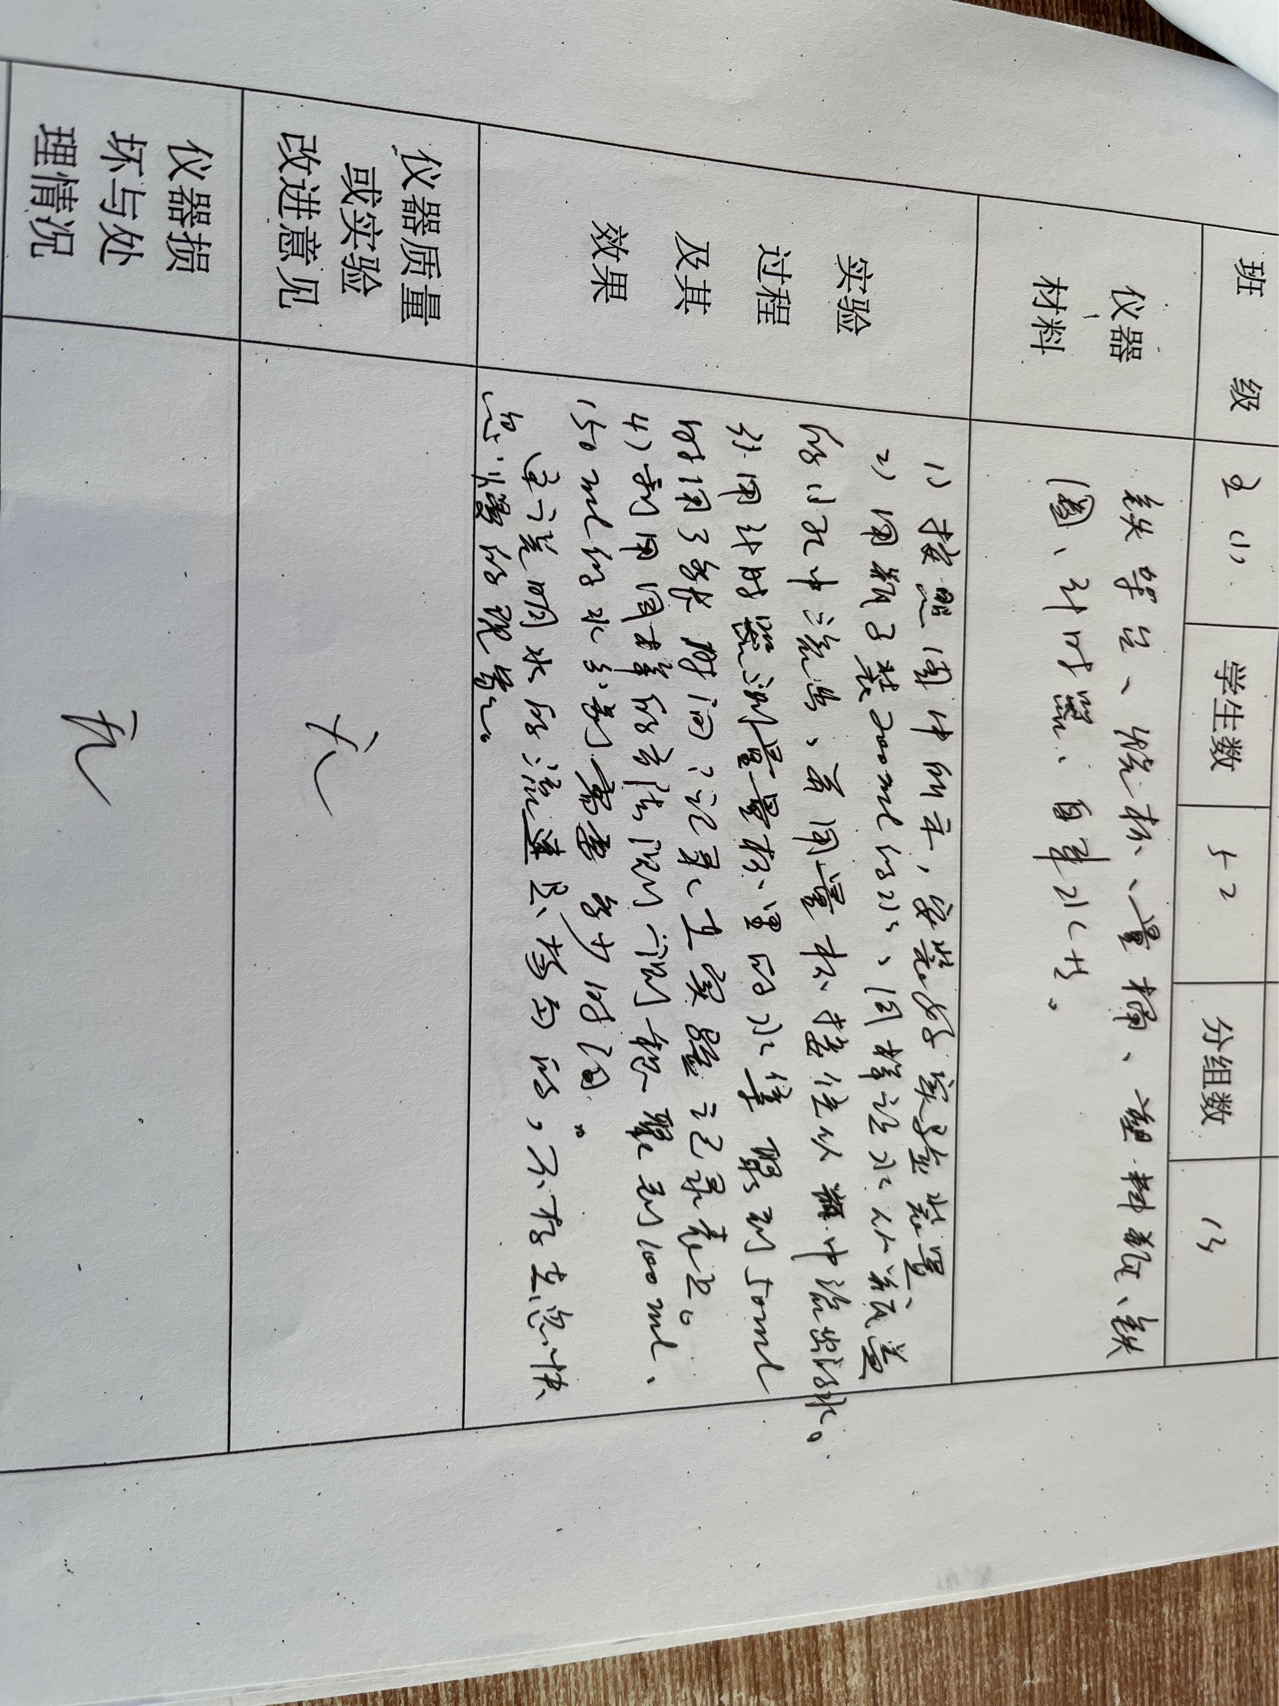 班 级 五(1) 学生数 52 分组数 13
仪器
材料
铁架台、烧杯、量桶、塑料瓶、铁
圈、计时器、自来水共。
实验
过程
及其
效果
1)按照图中所示,安装好实验装置、
2)用瓶子装200ml的水、同样让水从瓶盖
的小孔中流出、并用量杯接住从瓶中流出的水。
3)用计时器测量量杯里的水集聚到50ml
时用了多长时间记录在实验记录表上。
4)利用同样的方法观测聚到100ml、
150ml的水分别需要多少时间。
实验说明水的流速是均匀的,不存在忽快
忽慢的现象。
仪器质量
或实验
改进意见
无
仪器损
坏与处
理情况
无